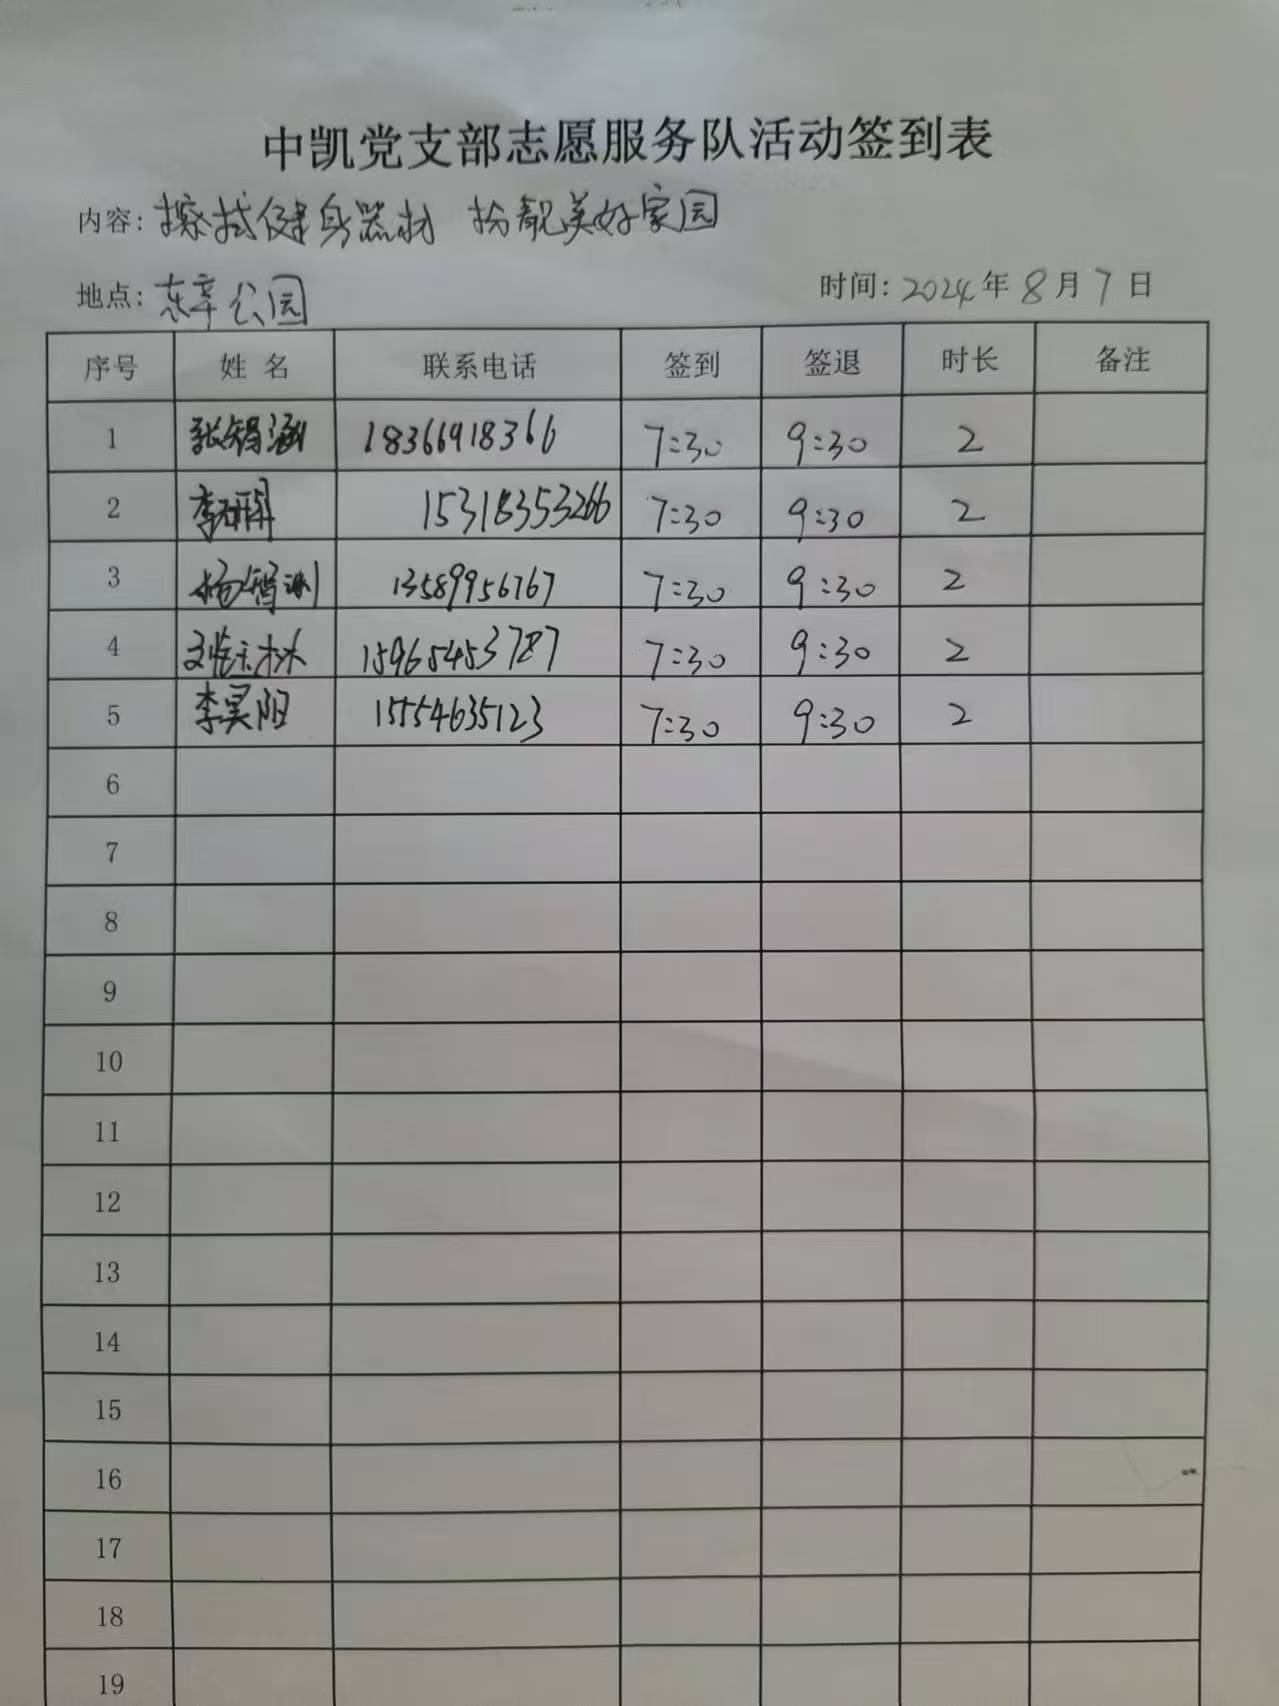 中凯党支部志愿服务队活动签到表
内容: 擦拭健身器材 扮靓美好家园
地点: 东辛公园 时间: 2024年8月7日
序号 姓名 联系电话 签到 签退 时长 备注
1 张锦涵 18366918366 7:30 9:30 2
2 李研 15318353266 7:30 9:30 2
3 杨智渊 13589956767 7:30 9:30 2
4 15965453787 7:30 9:30 2
5 李昊阳 15554635123 7:30 9:30 2
6
7
8
9
10
11
12
13
14
15
16
17
18
19